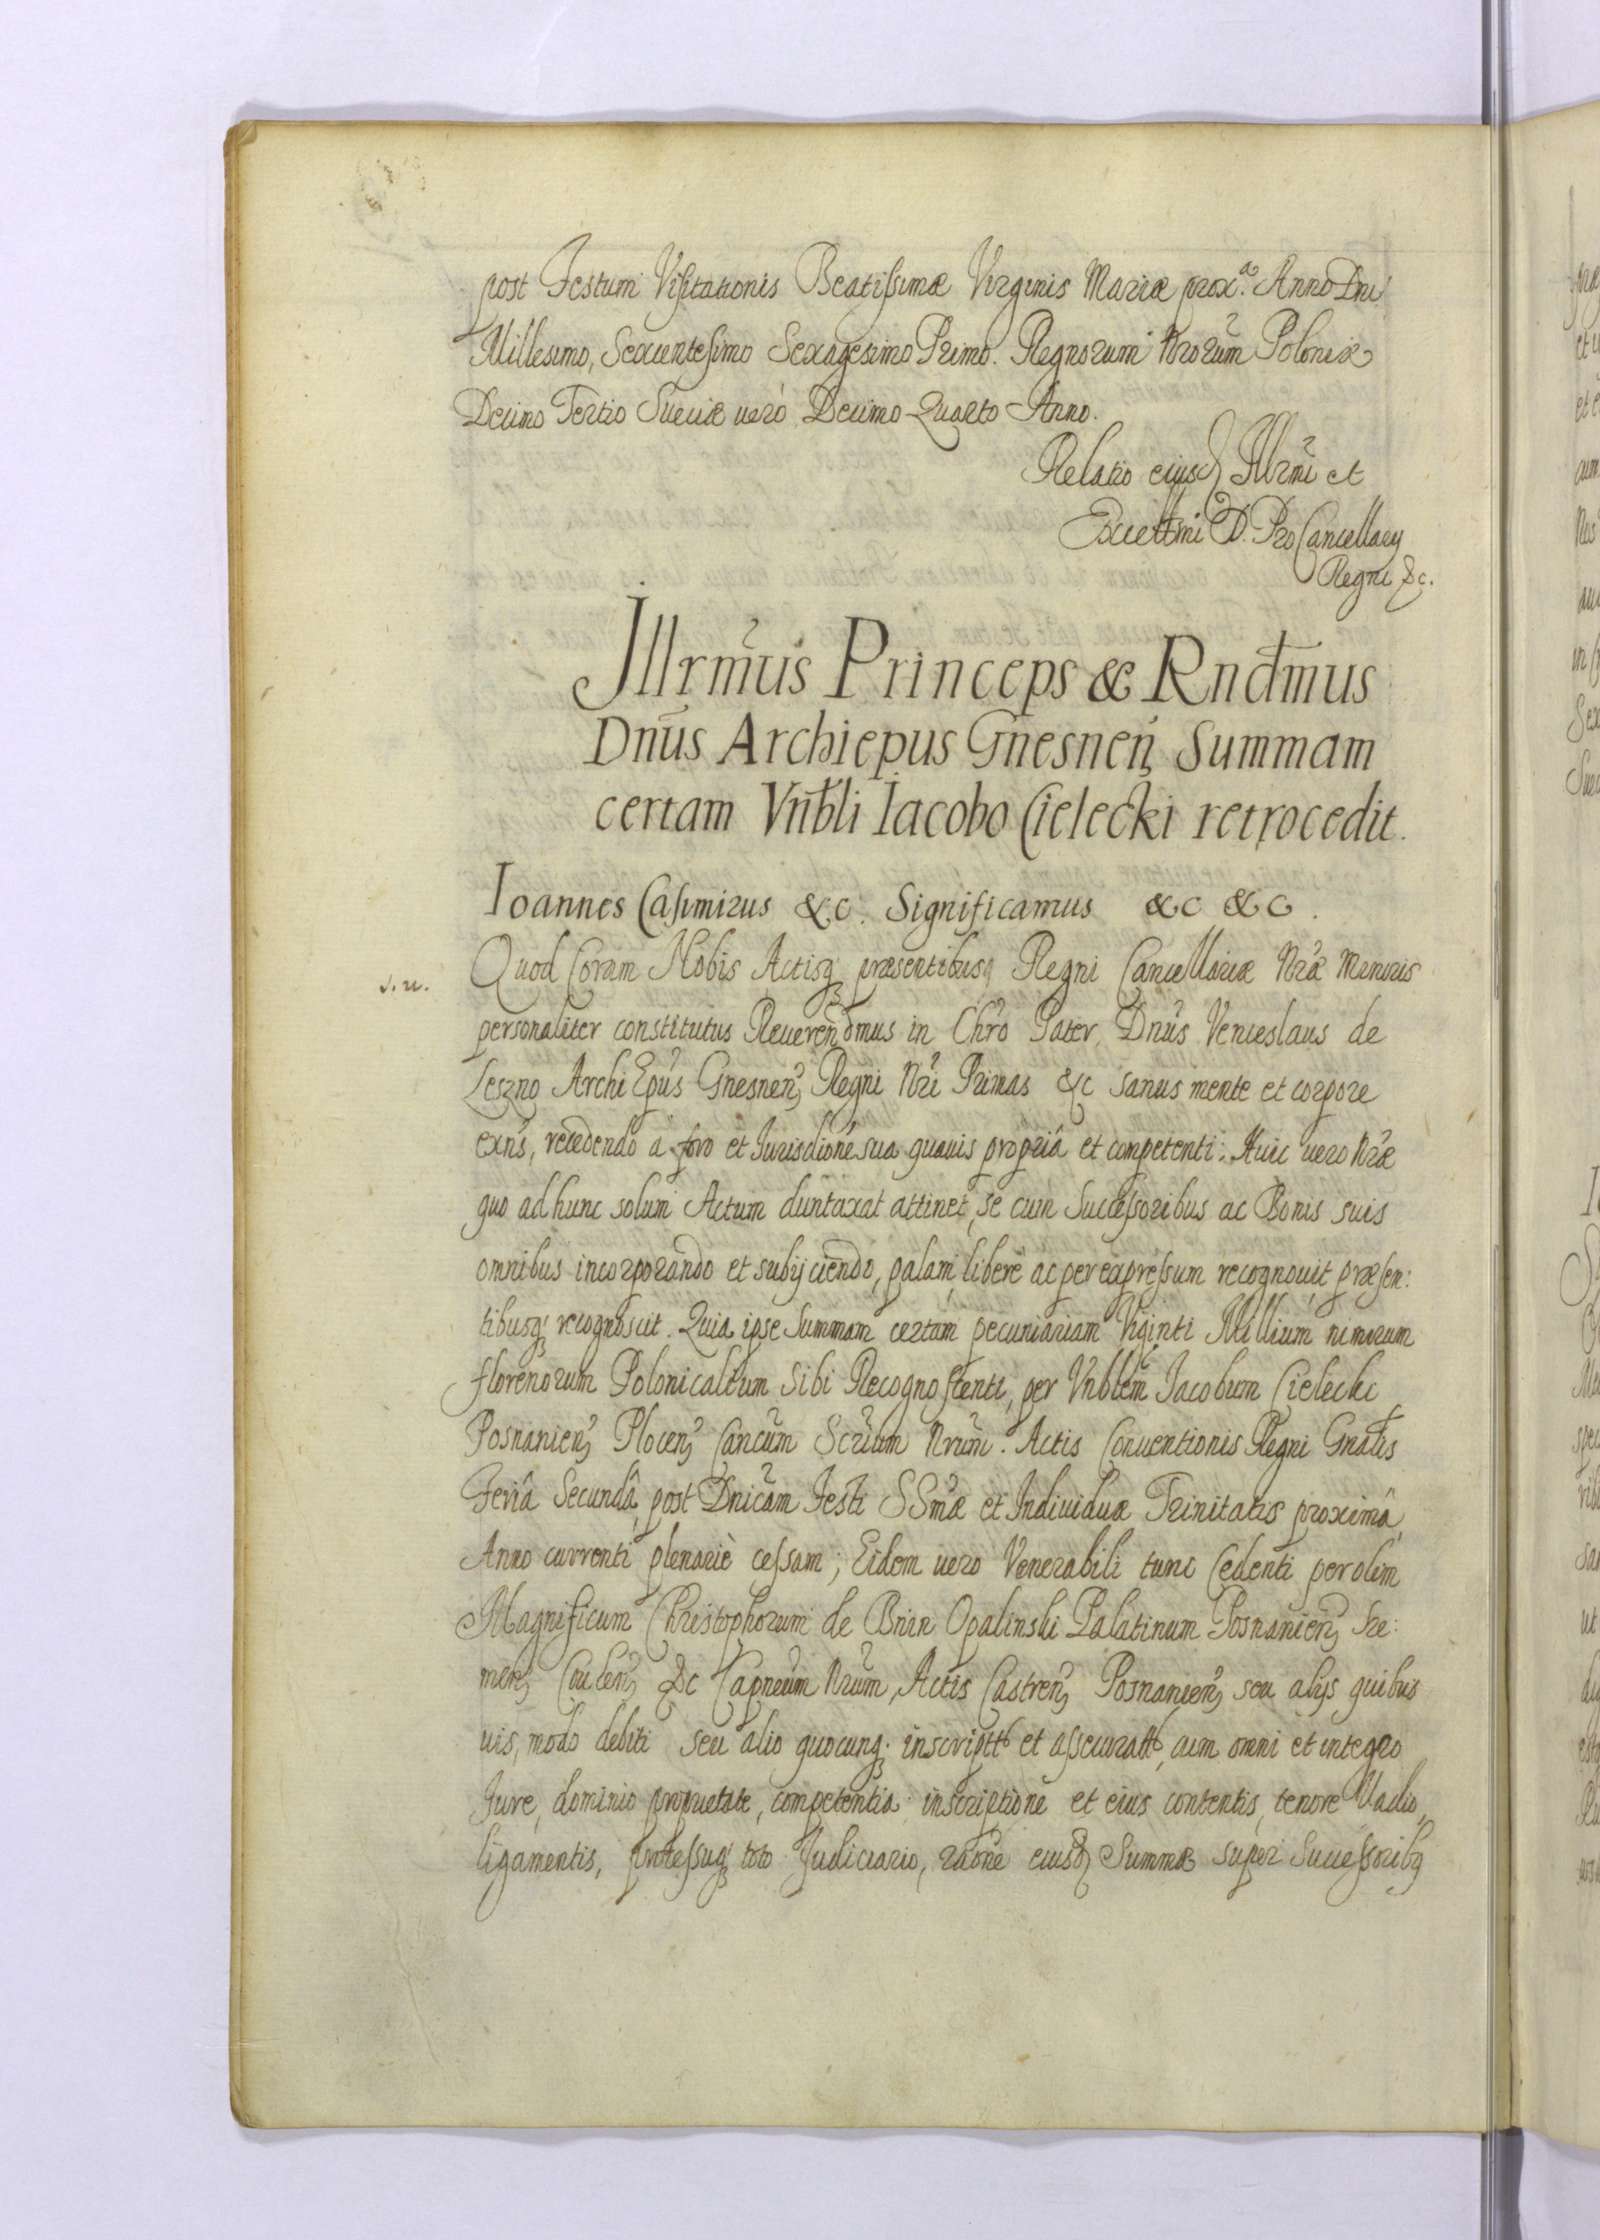 post Festum Visitationis Beatissimæ Virginis Mariæ prox.ᵃ Anno Dni
Millesimo, Sexcentesimo Sexagesimo Primo. Regnorum Nrorum Poloniæ
Decimo Tertio Sueciæ uerò Decimo Quarto Anno.
Relatio eiusd Illrmi et
Excellmi D. ProCancellary
Regni &c.
Illrmus Princeps & Rndmus
Dnus Archiepus Gnesnen Summam
certam Vnbli Iacobo Cielecki retrocedit.
Ioannes Casimirus &c. Significamus &c &c.
Quod Coram Nobis Actisq præsentibusq Regni Cancellariæ Nræ Minoris
personaliter constitutus Reuerendmus in Chro Pater, Dnus Venceslaus de
Leszno ArchiEpus Gnesnen, Regni Nri Primas &c sanus mente et corpore
exns, recedendo a foro et Iurisdione sua quauis propriâ et competenti: Huic uero Nræ
quo ad hunc solum Actum duntaxat attinet, se cum Successoribus ac Bonis suis
omnibus incorporando et subijciendo, palam, liberè ac per expressum recognouit, præsen:
tibusq recognoscit. Quia ipse Summam certam pecuniariam Viginti Millium nimorum
florenorum Polonicalium Sibi Recognoscenti, per Vnblem Iacobum Cielecki
Posnanien, Plocen, Cancum Scrium Nrum. Actis Conuentionis Regni Gnalis
Feriâ Secundâ, post Dnicam Festi SSmæ et Indiuiduæ Trinitatis proximâ,
Anno currenti plenariè cessam; Eidem uero Venerabili tunc Cedenti per olim
Magnificum Christophorum de Bnin Opalinski Palatinum Posnanien, Sre:
men, &c Capneum Nrum, Actis Castren, Posnanien, seu alys quibus
uis, modo debiti seu alio quocunq. inscriptt et assecuratt, cum omni et integro
Iure, dominio proprietate, competentia inscriptione et eius contentis, tenore Vadio,
ligamentis, processuq toto Iudiciario, raone eiusd Summæ super Successoribq